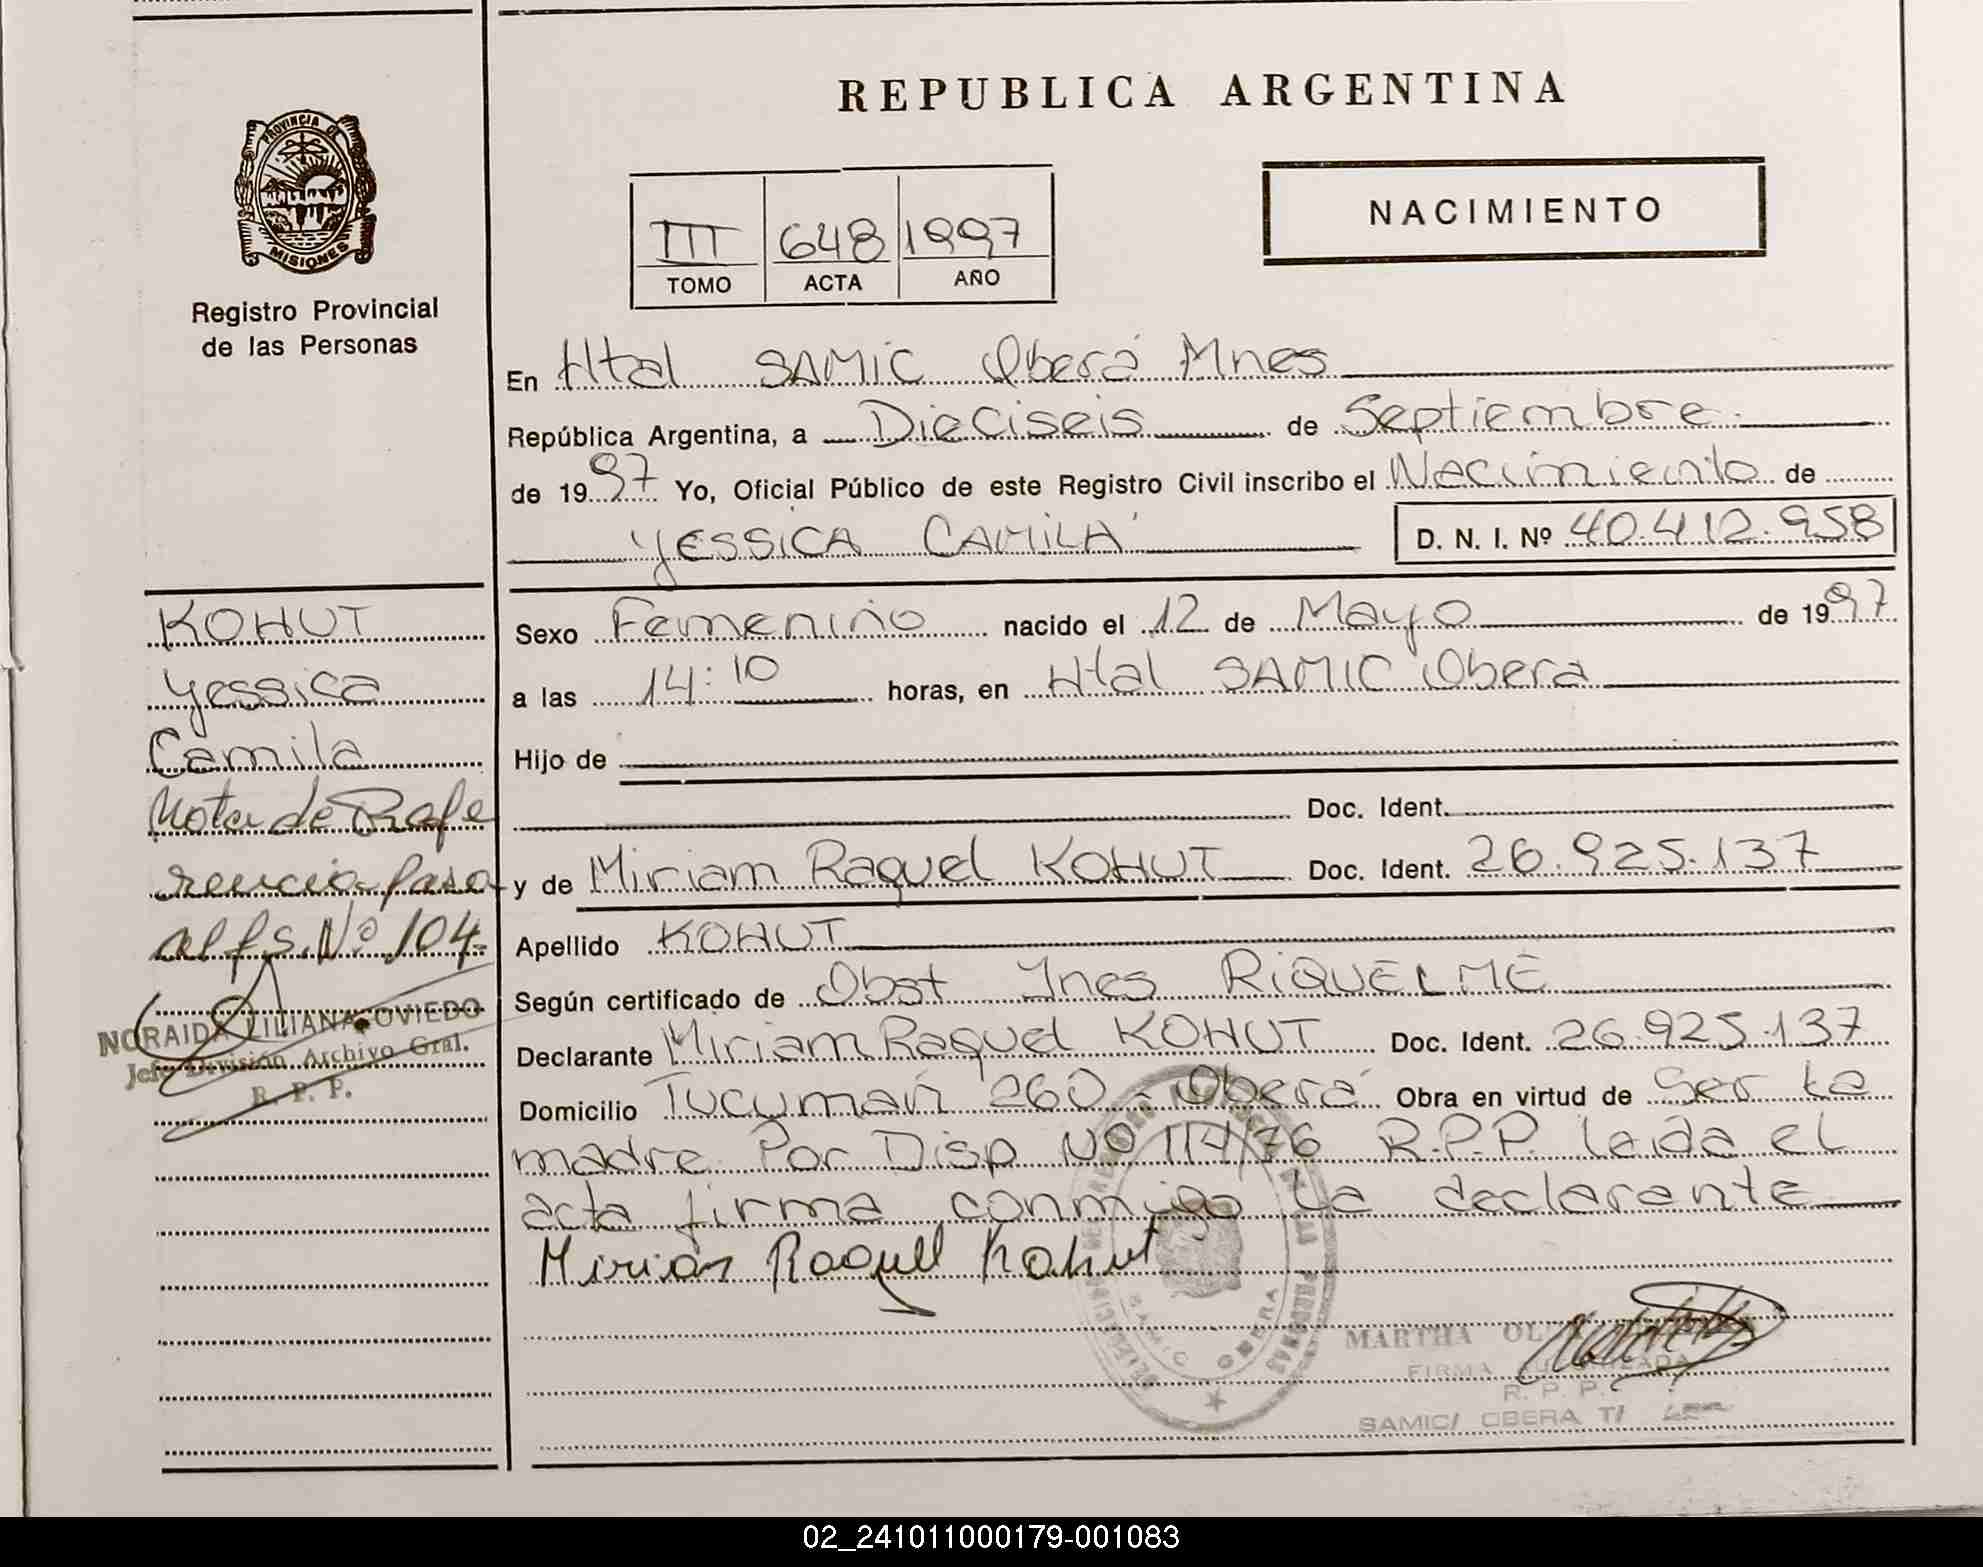 REPUBLICA ARGENTINA
PROVINCIA DE
MISIONES
Registro Provincial
de las Personas
III 648 1997
TOMO ACTA AÑO
NACIMIENTO
En Htal SAMIC Oberá Mnes
República Argentina, a Dieciseis de Septiembre
de 1997 Yo, Oficial Público de este Registro Civil inscribo el Nacimiento de
YESSICA CAMILA
D. N. I. Nº 40.412.958
KOHUT
Yessica
Camila
Nota de Refe
rencia pasa
al fs. Nº 104
NORAIDA LILIANA OVIEDO
Jefe División Archivo Gral.
R. P. P.
Sexo Femenino nacido el 12 de Mayo de 1997
a las 14:10 horas, en Htal SAMIC Obera
Hijo de
Doc. Ident.
y de Miriam Raquel KOHUT Doc. Ident. 26.925.137
Apellido KOHUT
Según certificado de Obst Ynes RIQUELME
Declarante Miriam Raquel KOHUT Doc. Ident. 26.925.137
Domicilio Tucuman 260 - Oberá Obra en virtud de Ser la
madre Por Disp Nº 114/76 R.P.P. leida el
acta firma conmigo la declarante
Mirian Raquel Kohut
MARTHA
FIRMA AUTORIZADA
R. P. P.
SAMIC/ OBERA
02_241011000179-001083